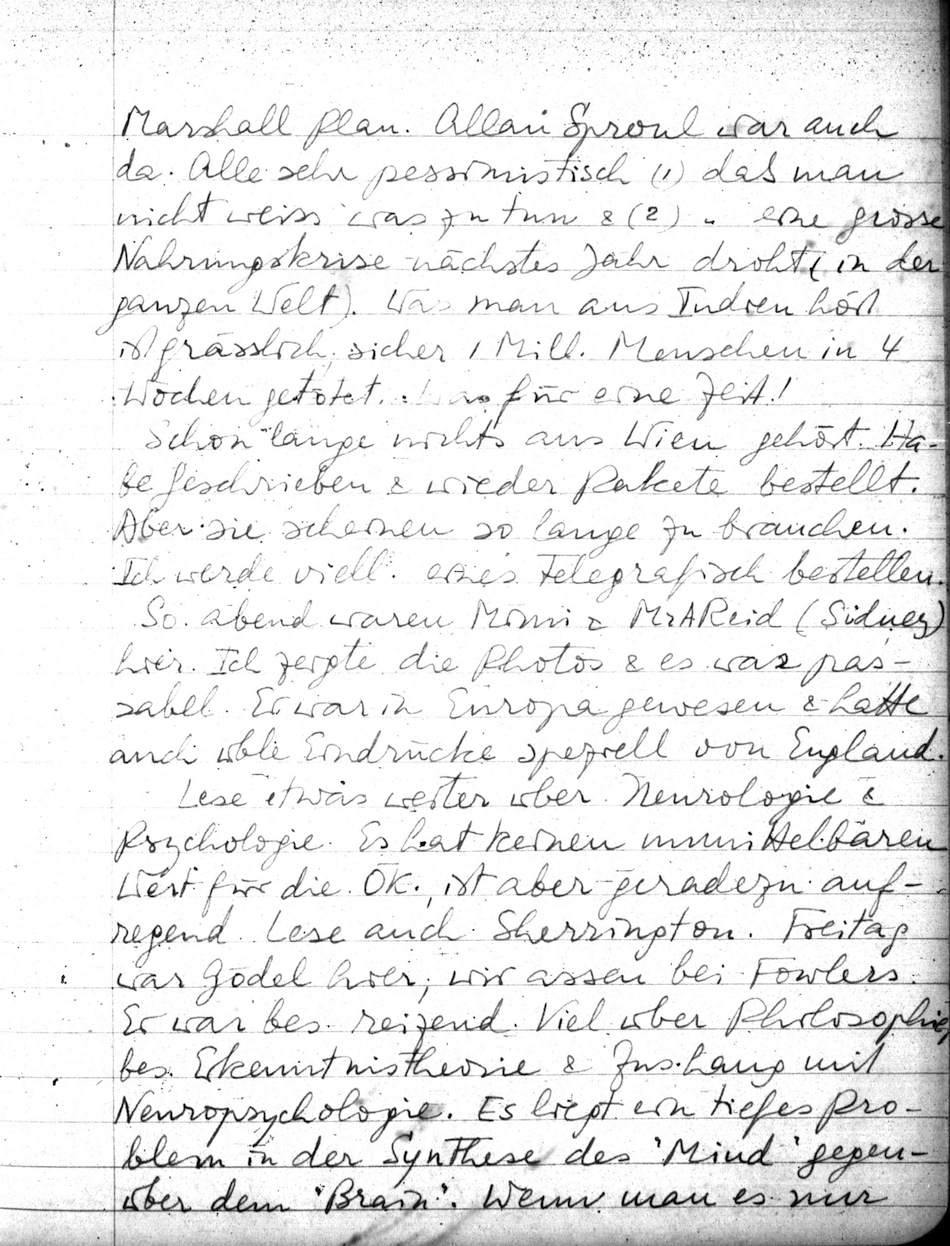 Marshall Plan. Allan Sproul war auch
da. Alle sehr pessimistisch (1) daß man
nicht weiss was zu tun & (2) " eine grosse
Nahrungskrise nächstes Jahr droht (in der
ganzen Welt). Was man aus Indien hört
ist grässlich; sicher 1 Mill. Menschen in 4
Wochen getötet. Was für eine Zeit!
Schon lange nichts aus Wien gehört. Ha-
be geschrieben & wieder Pakete bestellt.
Aber sie scheinen so lange zu brauchen.
Ich werde viell. eines telegrafisch bestellen.
So. abend waren Mimi & Reid (Sidney)
hier. Ich zeigte die Photos & es war pas-
sabel. Er war in Europa gewesen & hatte
auch üble Eindrücke speziell von England.
Lese etwas weiter über Neurologie &
Psychologie. Es hat keinen unmittelbaren
Wert für die Ök., ist aber geradezu auf-
regend. Lese auch Sherrington. Freitag
war Gödel hier; wir assen bei Fowlers.
Er war bes. reizend. Viel über Philosophie,
bes. Erkenntnistheorie & Zus.hang mit
Neuropsychologie. Es liegt ein tiefes Pro-
blem in der Synthese des "Mind" gegen-
über dem "Brain". Wenn man es nur